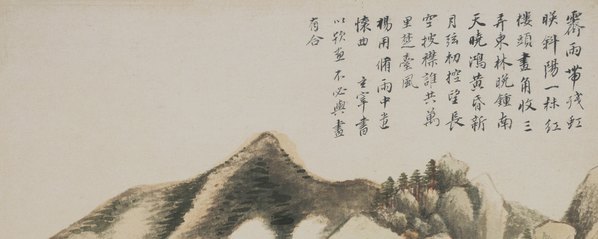 霽雨帶殘虹
映斜陽一抹紅
樓頭畫角收三
弄東林晚鍾南
天曉鴻黃昏新
月弦初控望長
空披襟誰共萬
里楚臺風
楊用脩雨中遣
懷曲 玄宰書
以欵畫不必與畫
有合